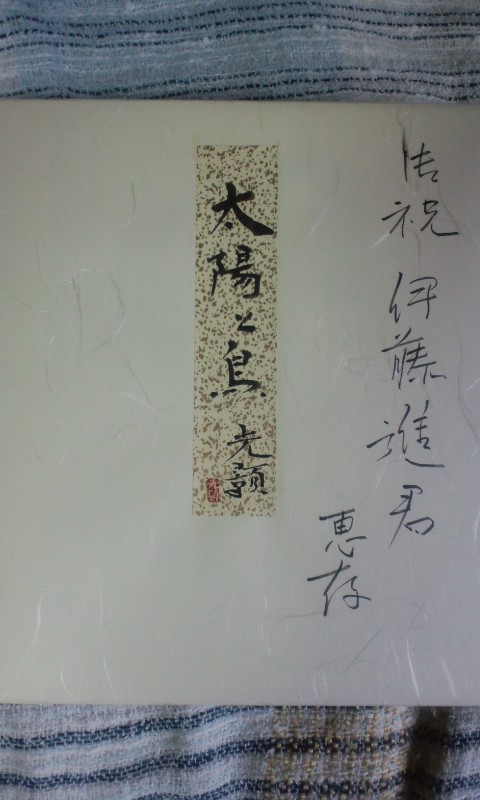 祝 伊藤進君
恵存
太陽と鳥
光